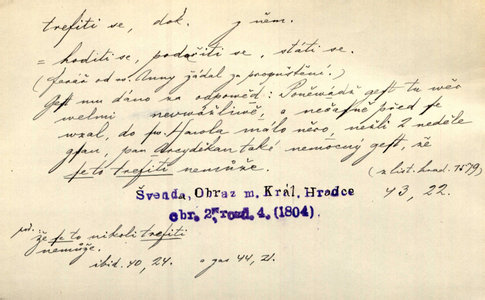 trefiti se, dok. z něm.
= hoditi se, podařiti se, státi se.
(farář od sv. Anny žádal za propuštění.)
Gest mu dáno za odpověd: Poněwádž gest tu wěc
welmi newwážliwě, a nešafně před se
wzal, do sw. Hawla málo něco, nežli 2 neděle
gsau, pan Arcyděkan také nemocný gest, že
se to trefiti nemůže. (z list. hrad. 1579)
Švenda, Obraz m. Král. Hradce 43, 22.
obr. 2, rozd. 4. (1804).
pod.: že se to nikoli trefiti
nemůže.
ibid. 40, 24. a gas 44, 21.